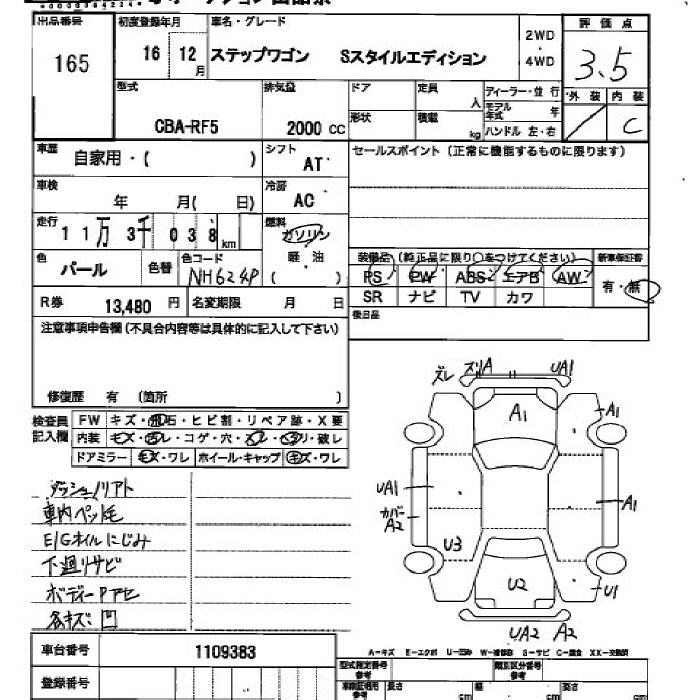 出品番号 初度登録年月 車名・グレード 評価点
165 16 12月 ステップワゴン Sスタイルエディション 2WD・4WD 3.5
型式 排気量 ドア 定員 人 ディーラー・並行 外装 内装
CBA-RF5 2000 cc 形状 積載 kg モデル年式 年 ハンドル 左・右 C
車歴 自家用・( ) シフト AT セールスポイント(正常に機能するものに限ります)
車検 年 月( 日) 冷房 AC
走行 11万 3千 038 km 燃料 ガソリン 軽・油 ( )
色 パール 色替 色コード NH624P 装備品(純正品に限り○をつけてください) 新車保証書
PS PW ABS エアB AW 有・無
R券 13,480 円 名変期限 月 日 SR ナビ TV カワ
注意事項申告欄(不具合内容等は具体的に記入して下さい) 後日品
修復歴 有 (箇所 )
検査員記入欄 FW キズ・飛石・ヒビ割・リペア跡・X要
内装 キズ・汚レ・コゲ・穴・スレ・ヘタリ・破レ
ドアミラー キズ・ワレ ホイール・キャップ キズ・ワレ
ズレ ズリA UA1
A1 A1
UA1 A1
カバーA2
U3 U2 U1
UA2 A2
ダッシュノリアト
車内ペット毛
E/Gオイルにじみ
下廻りサビ
ボディーPアセ
各キズ凹
A-キズ E-エクボ U-凹み W-補修跡 S-サビ C-腐食 XX-交換済
車台番号 1109383
登録番号 型式指定番号 参考 類別区分番号 参考
長さ cm 幅 cm 高さ cm